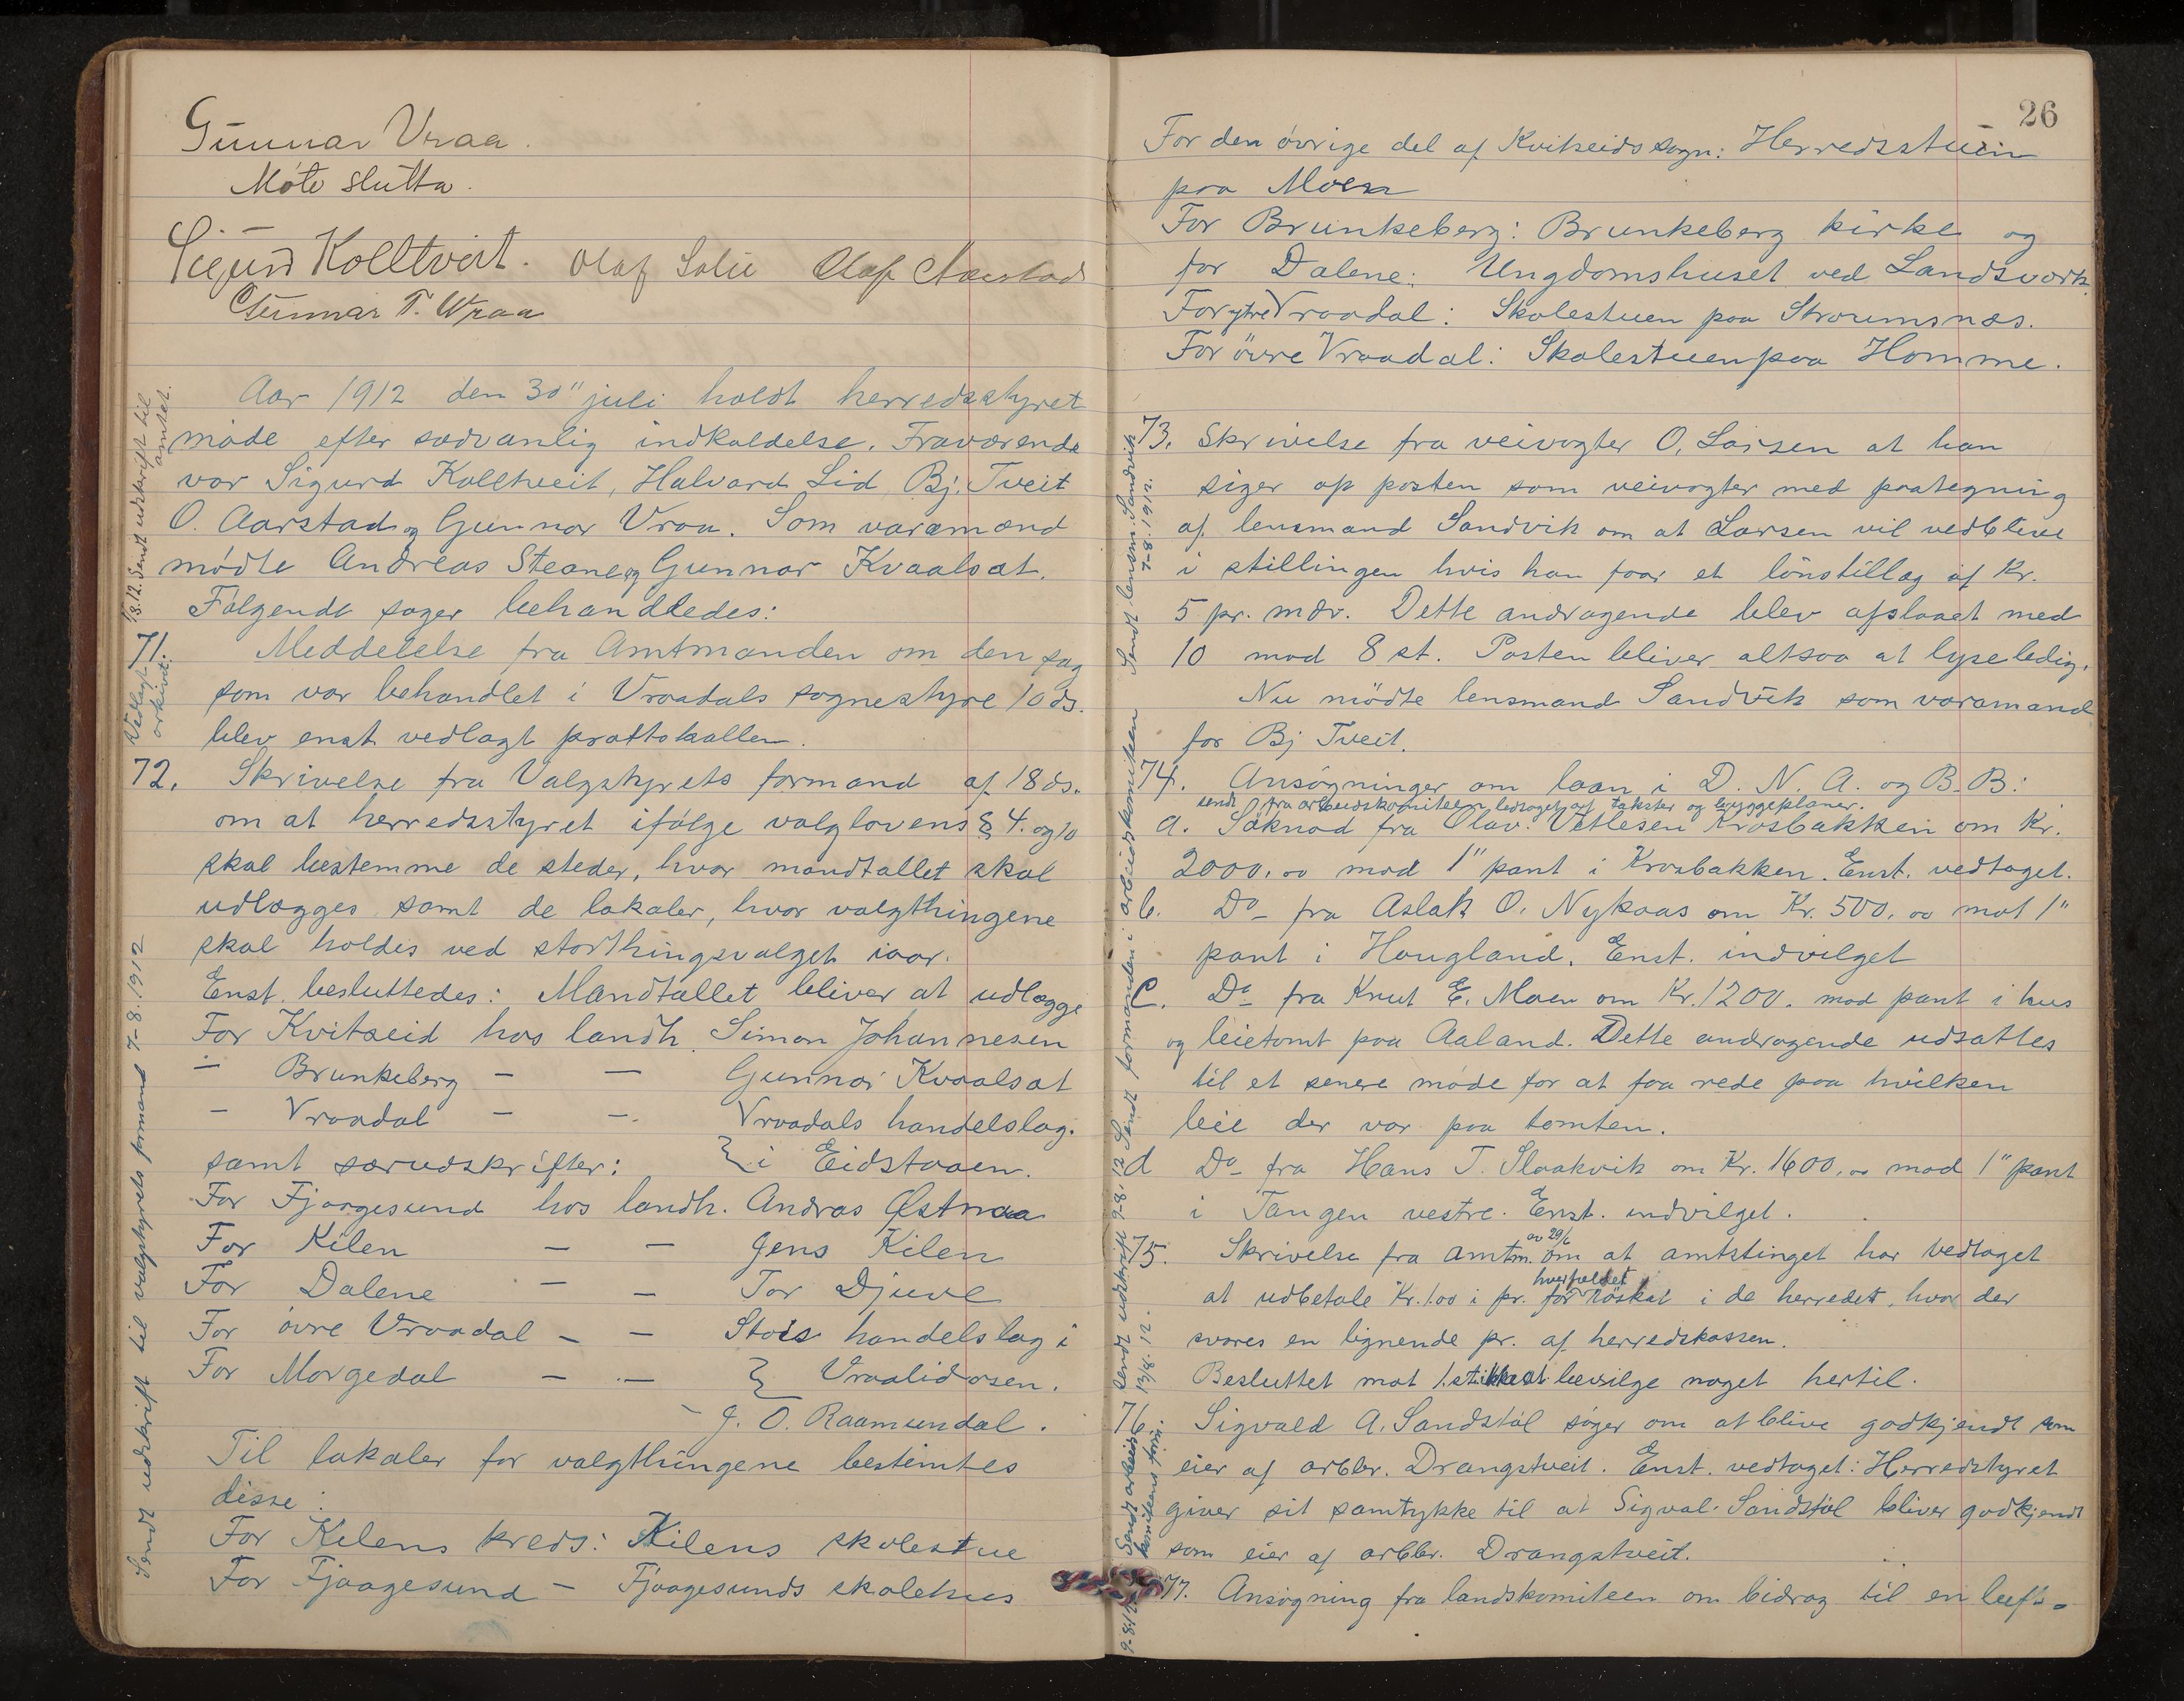 Gunnar Vraa.
Møte slutta.
Sigurd Kolltveit. Olaf Solli Olaf Aarstad
Gunnar T. Wraa
Aar 1912 den 30" juli holdt herredsstyret
møde efter sædvanlig indkaldelse. Fraværende
var Sigurd Kolltveit, Halvard Lid, Bj. Tveit
O. Aarstad og Gunnar Vraa. Som varamænd
mødte Andreas Steane og Gunnar Kvaalsat.
Følgende sager behandledes:
71. Meddelelse fra Amtmanden om den sag
som var behandlet i Vraadals sognestyre 10 ds.
blev enst vedlagt prottokollen.
72. Skrivelse fra Valgstyrets formand af 18 ds.
om at herredsstyret ifølge valglovens § 4. og 10
skal bestemme de steder, hvor mandtallet skal
udlægges samt de lokaler, hvor valgthingene
skal holdes ved storthingsvalget iaar.
Enst. besluttedes: Mandtallet bliver at udlægge
For Kvitseid hos landh. Simon Johannesen
- Brunkeberg - - Gunnar Kvaalsat
- Vraadal - - Vraadals handelslag.
samt særudskrifter: } i Eidstaaen.
For Fjaagesund hos landh. Andras Østraa
For Kilen - - Jens Kilen
For Dalene - - Tor Djuve
For øvre Vraadal - - Stois handelslag i
For Morgedal - - } Vraalidosen.
- J. O. Raamundal.
Til lokaler for valgthingene bestemtes
disse:
For Kilens kreds: Kilens skolestue
For Fjaagesund - Fjaagesunds skolehus
1/8.12. Sendt udskrift til
amtet.
Vedlagt
arkivet.
Sendt udskrift til valgstyrets formand 7-8.1912
26
For den øvrige del af Kvitseids sogn: Herredsstuen
paa Moen
For Brunkeberg: Brunkeberg kirke og
for Dalene: Ungdomshuset ved Landsverk.
For ytre Vraadal: Skolestuen paa Straumsnæs.
For øvre Vraadal: Skolestuen paa Homme.
73. Skrivelse fra veivogter O. Larsen at han
siger op posten som veivogter med paategning
af lensmand Sandvik om at Larsen vil vedblive
i stillingen hvis han faar et lønstillæg af Kr.
5 pr. mdr. Dette andragende blev afslaaet med
10 mod 8 st. Posten bliver altsaa at lyse ledig.
Nu mødte lensmand Sandvik som varamand
for Bj Tveit.
74. Ansøgninger om laan i D. N. A. og B. B:
sendt fra arbeidskomiteen ledsaget af takster og byggeplaner.
a. Søknad fra Olav Vetlesen Krosbakken om Kr.
2000.00 mod 1" pant i Krosbakken. Enst. vedtaget.
b. Do- fra Aslak O. Nykaas om Kr. 500.00 mot 1"
pant i Haugland. Enst. indvilget
C. Do- fra Knut E. Moen om Kr. 1200. mod pant i hus
og leietomt paa Aaland. Dette andragende udsattes
til et senere møde for at faa rede paa hvilken
leie der var paa tomten.
d Do- fra Hans T. Slaakvik om Kr. 1600.00 mod 1" pant
i Tangen vestre. Enst. indvilget.
av 29/6
75. Skrivelse fra amtm. om at amtstinget har vedtaget
hverfældet
at udbetale Kr. 1.00 i pr. for røiskat i de herreder, hvor der
svares en lignende pr. af herredskassen.
Besluttet mot 1. st. ikke at bevilge noget hertil.
76. Sigvald A. Sandstøl søger om at blive godkjendt som
eier af arbbr. Drangstveit. Enst. vedtaget: Herredstyret
giver sit samtykke til at Sigval Sandstøl bliver godkjendt
som eier af arbbr. Drangstveit.
77. Ansøgning fra landskomiteen om bidrag til en luft-
Sendt lensm. Sandvik
7-8.1912.
9-8.12 Sendt formanden i arbeidskomiteen
Sendt udskrift
13/8.12.
9-8.12 Sendt arbeids-
komiteens form.